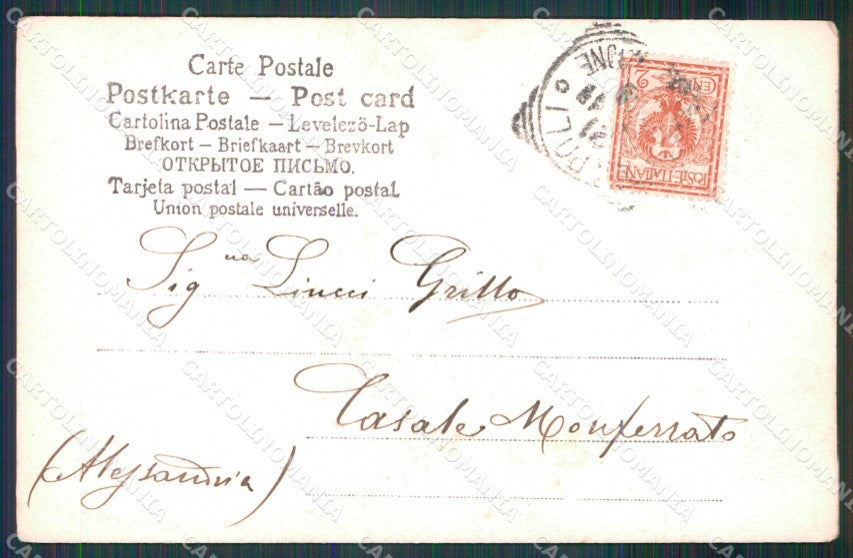 Carte Postale
Postkarte — Post card
Cartolina Postale — Levelező-Lap
Brefkort — Briefkaart — Brevkort
ОТКРЫТОЕ ПИСЬМО.
Tarjeta postal — Cartão postal
Union postale universelle.
POSTE·ITALIANE
CENT 2
POLI
Sig.na Liucci Grillo
Casale Monferrato
(Alessandria)
CARTOLINOMANIA